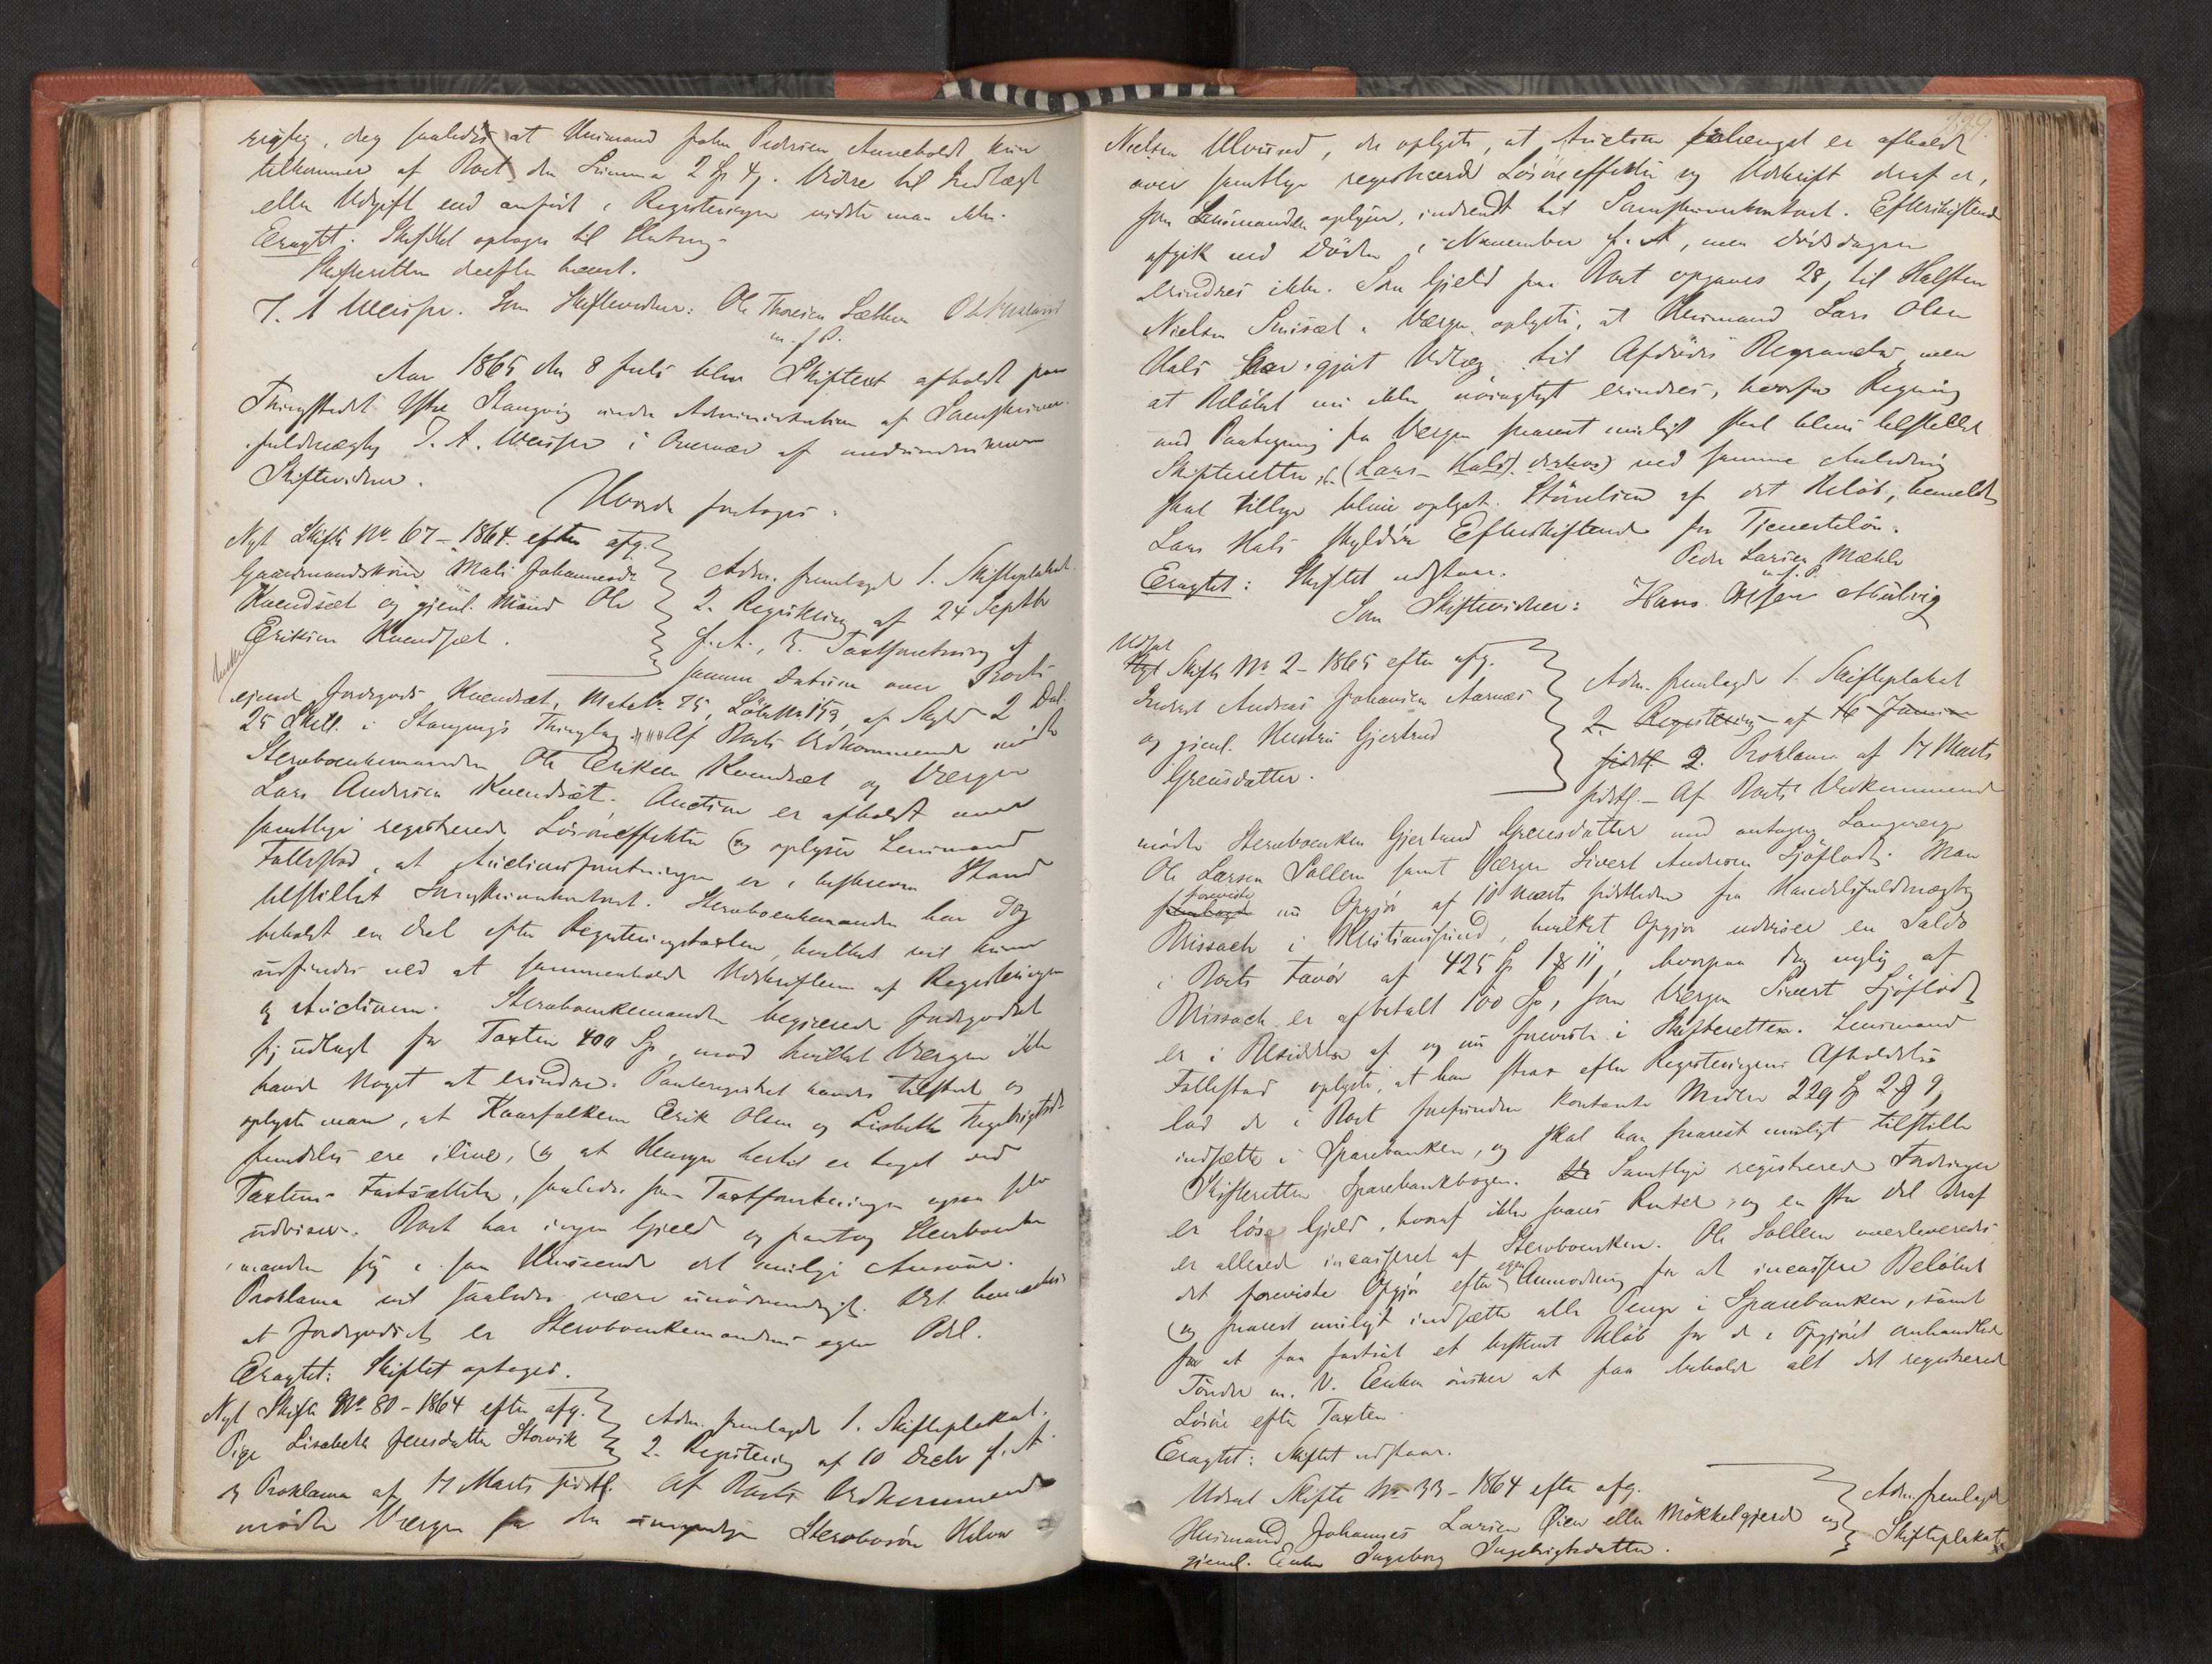 rigtig, dog saaledes at Huusmand John Pedersen Anneboldt kun
tilkommer af Boet den Summa 2 Sp 4 ß. Videre til Indtægt
eller Udgift end anført i Registeringen vidste man ikke.
Eragtet: Skiftet optages til Slutning.
Skifteretten derefter hævet.
J. A Weisser. Som Skiftevidner: Ole Thoresen Sæther
m. f. P.
Aar 1865 den 8 Juli blev Skifteret afholdt paa
Thingstedet Yttre Stangvig under Administration af Sorenskriver-
fuldmægtig J. A. Weisser i Overvær af medunderskrevne
Skiftevidner.
Hvorda foretoges:
Nyt Skifte No 67 - 1864 efter afg.
Gaardmandskone Mali Johannesdr
Kvendsæt og gjenl. Mand Ole
Eriksen Kvendsæt.
Adm. fremlagde 1. Skifteplakat
2. Registering af 24 Septbr
f. A., 3. Taxtforretning af
samme Datum over Boets
eiende Jordegods Kvendsæt, Matr No 75, Løbe No 159, af Skyld 2 Dal.
25 Skill. i Stangvigs Thinglag. Af Boets Vedkommende mødte
Stervboenkemanden Ole Eriksen Kvendsæt og Værgen
Lars Andersen Kvendsæt. Auction er afholdt over
samtlige registrerede Løsøreeffekter og oplyser Lensmand
Tallestad, at Auctionsforretningen er i beskreven Stand
tilstillet Sorenskriverkontoret. Stervboenkemanden har dog
beholdt en Deel efter Registeringstaxten, hvilket vil kunne
udfindes ved at sammenholde Udskriften af Registeringen
og Auctionen. Stervboenkemanden begjærede Jordegodset
sig udlagt for Taxten 400 Sp, mod hvilket Værgen ikke
havde Noget at erindre. Panteregistret havdes tilstede og
oplyste man, at Kaarfolkene Erik Olsen og Lisbeth Ingebrigtsdr
fremdeles ere ilive, og at Hensyn hertil er taget ved
Taxtens Fastsættelse, saaledes som Taxtforretningen ogsaa selv
udviser. Boet har ingen Gjeld og paatog Stervboenke-
manden sig i saa Henseende det mulige Ansvar.
Proklama vil saaledes være unødvendigt. Det bemærkes
at Jordegodset er Stervboenkemandens egen Odel.
Eragtet: Skiftet optages.
Nyt Skifte No 80 - 1864 efter afg.
Pige Lisabeth Jensdatter Storvik
Adm. fremlagde 1. Skifteplakat.
2. Registering af 10 Decbr f. A
og Proklama af 17 Marts sidstl. Af Boets Vedkommende
mødte Værgen for den umyndige Stervbosøn Halvor
Nielsen Ulvund, der oplyste, at Auction forlængst er afholdt
over samtlige registrerede Løsøreeffekter og Udskrift deraf er,
som Lensmanden oplyser, indsendt til Sorenskriverkontoret. Efterskiftende
afgik ved Døden i November f. A, men Dødsdagen
erindres ikke. Som Gjeld paa Boet opgaves 28 ß til Halsten
Nielsen Smisæt. Værgen oplyste, at Huusmand Lars Olsen
Hals har gjort Udlæg til Afdødes Begravelse, men
at Beløbet nu ikke nøiagtigt erindres, hvorfor Regning
med Paategning fra Værgen snarest muligt skal blive tilstillet
Skifteretten, (Lars Hals) ved samme Anledning
skal tillige blive oplyst Størrelsen af det Beløb, bemeldte
Lars Hals skyldte Efterskiftende for Tjenesteløn.
Eragtet: Skiftet udstaar.
Peder Larsen Mæhle
m. f. P.
Som Skiftevidner: Hans Olsen Aalvig
Udsat
Nyt Skifte No 2 - 1865 efter afg.
Andreas Johansen Aarnes
og gjenl. Hustru Gjertrud
Greisdatter.
Adm. fremlagde 1. Skifteplakat
2. Registering af 16 Januar
sidstl. 2. Proklama af 17 Marts
sidstl. - Af Boets Vedkommende
mødte Stervboenken Gjertrud Greisdatter med antagen Laugværge
Ole Larsen Sollem samt Værgen Sivert Andersen Sjøflodt. Man
foreviste
fremlagde nu Opgjør af 10 Marts sidstleden fra Handelsfuldmægtig
Brissach i Kristiansund, hvilket Opgjør udviser en Saldo
i Boets Favør af 425 Sp 1 ß 11, hvorpaa dog nylig af
Brissach er afbetalt 100 Sp, som Værgen Sivert Sjøflodt
er i Besiddelse af og nu foreviste i Skifteretten. Lensmand
Tallestad oplyste, at han strax efter Registeringens Afholdelse
lod de i Boet forefundne kontante Midler 229 Sp 2 ß 9
indsætte i Sparebanken, og skal han snarest muligt tilstille
Skifteretten Sparebankbogen. Samtlige registrerede Fordringer
er løse Gjeld, hvoraf ikke svares Renter, og en stor Del deraf
er allerede incasseret af Stervboenken. Ole Sollem overleveredes
det foreviste Opgjør efter egen Anmodning for at incassere Beløbet
og snarest muligt indsætte alle Penge i Sparebanken, samt
for at faa fastsat et bestemt Beløb for de i Opgjøret omhandlede
Tønder m. V. Enken ønsker at faa beholde alt det registrerede
Løsøre efter Taxten.
Eragtet: Skiftet udstaar.
Udsat Skifte No 33 - 1864 efter afg.
Huusmand Johannes Larsen Øien eller Møkkelgjerd og
gjenl. Enke Ingeborg Ingebrigtsdatter.
Adm. fremlagde
Skifteplakat